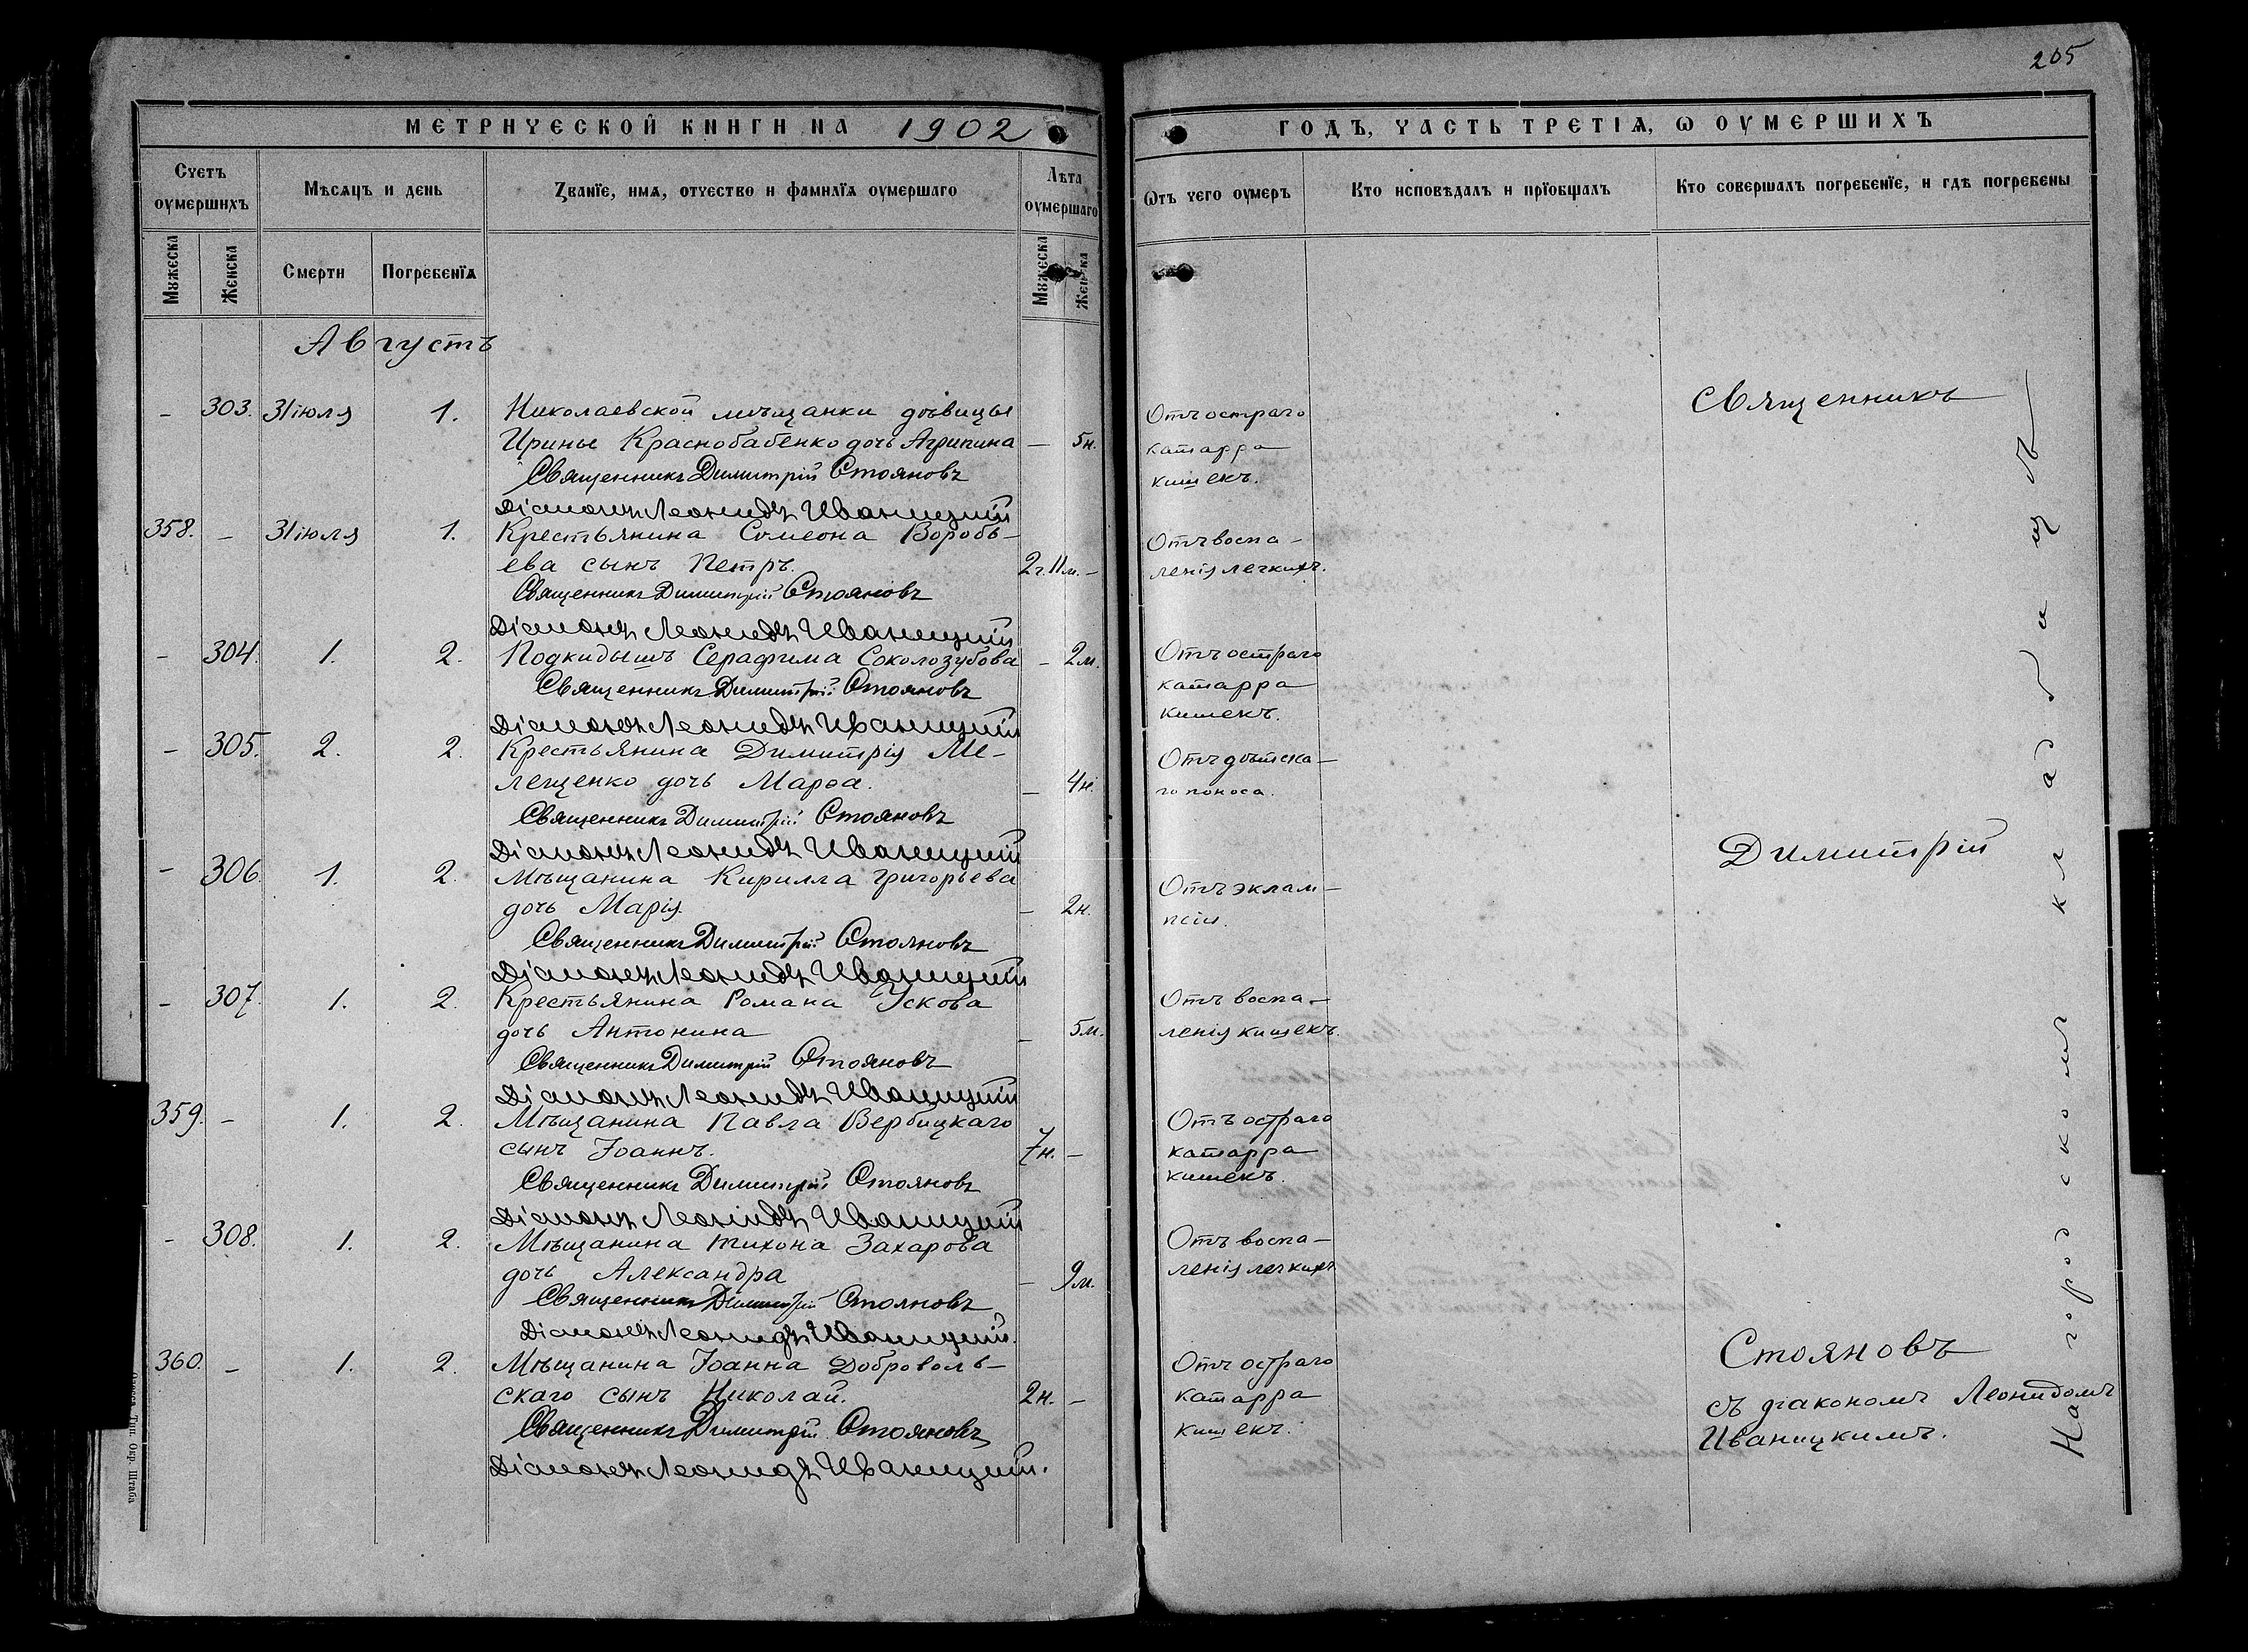 205
МЕТРИЧЕСКОЙ КНИГИ НА 1902
ГОДЪ, ЧАСТЬ ТРЕТІѦ, Ѡ ОУМЕРШИХЪ
Счетъ оумершихъ
Мѣсяцъ и день
Званїе, имѧ, отчество и фамилїѧ оумершаго
Лѣта оумершаго
Ѿтъ чего оумеръ
Кто исповѣдалъ и прїобщалъ
Кто совершалъ погребенїе, и гдѣ погребены
Мужеска
Женска
Смерти
Погребенїѧ
Мужеска
Женска
Августъ
– 303. 31 іюля 1. Николаевской мѣщанки дѣвицы
Ирины Краснобабенко дочь Агрипина – 5н.
Отъ остраго
катарра
кишекъ.
Священникъ Димитрій Стояновъ
Діаконъ Леонидъ Иваницкій
358. – 31 іюля 1. Крестьянина Симеона Воробь–
ева сынъ Петръ. 2г.11м. –
Отъ воспа–
ленія легкихъ.
Священникъ Димитрій Стояновъ
Діаконъ Леонидъ Иваницкій
– 304. 1. 2. Подкидышъ Серафима Соколозубова – 2м.
Отъ остраго
катарра
кишекъ.
Священникъ Димитрій Стояновъ
Діаконъ Леонидъ Иваницкій
– 305. 2. 2. Крестьянина Димитрія Ме–
лещенко дочь Марѳа. – 4н.
Отъ дѣтска–
го поноса.
Священникъ Димитрій Стояновъ
Діаконъ Леонидъ Иваницкій
– 306. 1. 2. Мѣщанина Кирилла Григорьева
дочь Марія. – 2н.
Отъ эклам–
псіи.
Священникъ Димитрій Стояновъ
Діаконъ Леонидъ Иваницкій
– 307. 1. 2. Крестьянина Романа Ускова
дочь Антонина – 5м.
Отъ воспа–
ленія кишекъ.
Священникъ Димитрій Стояновъ
Діаконъ Леонидъ Иваницкій
359. – 1. 2. Мѣщанина Павла Вербицкаго
сынъ Іоаннъ. 7н. –
Отъ остраго
катарра
кишекъ.
Священникъ Димитрій Стояновъ
Діаконъ Леонидъ Иваницкій
– 308. 1. 2. Мѣщанина Тихона Захарова
дочь Александра – 9м.
Отъ воспа–
ленія легкихъ
Священникъ Димитрій Стояновъ
Діаконъ Леонидъ Иваницкій.
360. – 1. 2. Мѣщанина Іоанна Доброволь–
скаго сынъ Николай. 2н. –
Отъ остраго
катарра
кишекъ.
Священникъ Димитрій Стояновъ
Діаконъ Леонидъ Иваницкій.
Священникъ
Димитрій
Стояновъ
съ діакономъ Леонидомъ
Иваницкимъ.
На городскомъ кладбищѣ
Одесса, Тип. Окр. Штаба